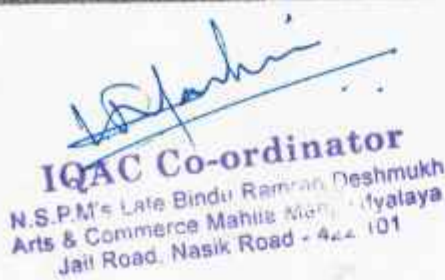 IQAC Co-ordinator
N.S.P.M's Late Bindu Ramrao Deshmukh
Arts & Commerce Mahila
Jail Road, Nasik Road - 422 101